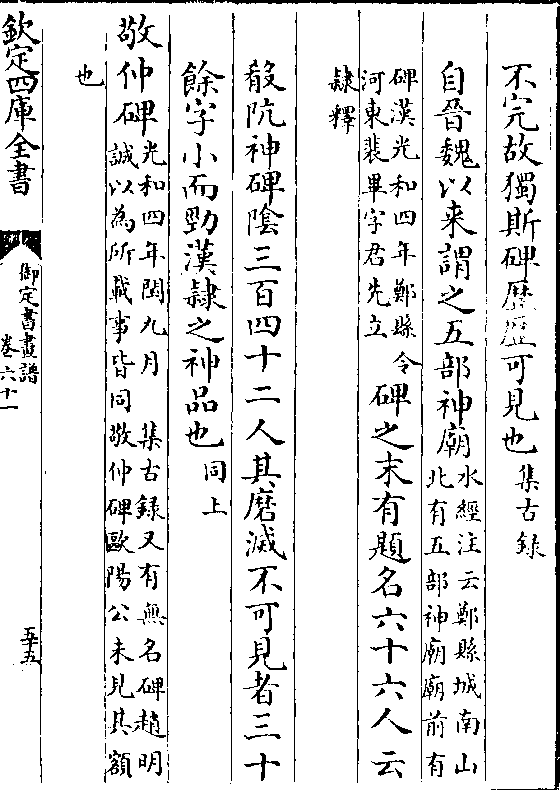 不完故獨斯碑歷歷可見也集古錄
自晉魏以来謂之五部神廟水經注云鄭縣城南山
北有五部神廟廟前有
碑漢光和四年鄭縣令
河東裴畢字君先立
碑之末有題名六十六人云
隸釋
殽阬神碑陰三百四十二人其磨滅不可見者三十
餘字小而勁漢隸之神品也同上
敬仲碑光和四年閏九月 集古錄又有無名碑趙明
誠以為所載事皆同敬仲碑歐陽公未見其額
也
欽定四庫全書
御定書畫譜
卷六十一
五十五